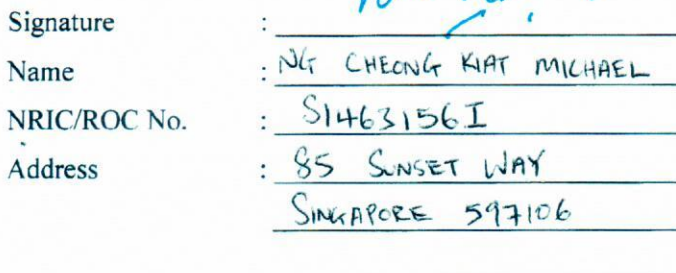 Signature :
Name : NG CHEONG KIAT MICHAEL
NRIC/ROC No. : S1463156I
Address : 85 SUNSET WAY
SINGAPORE 597106